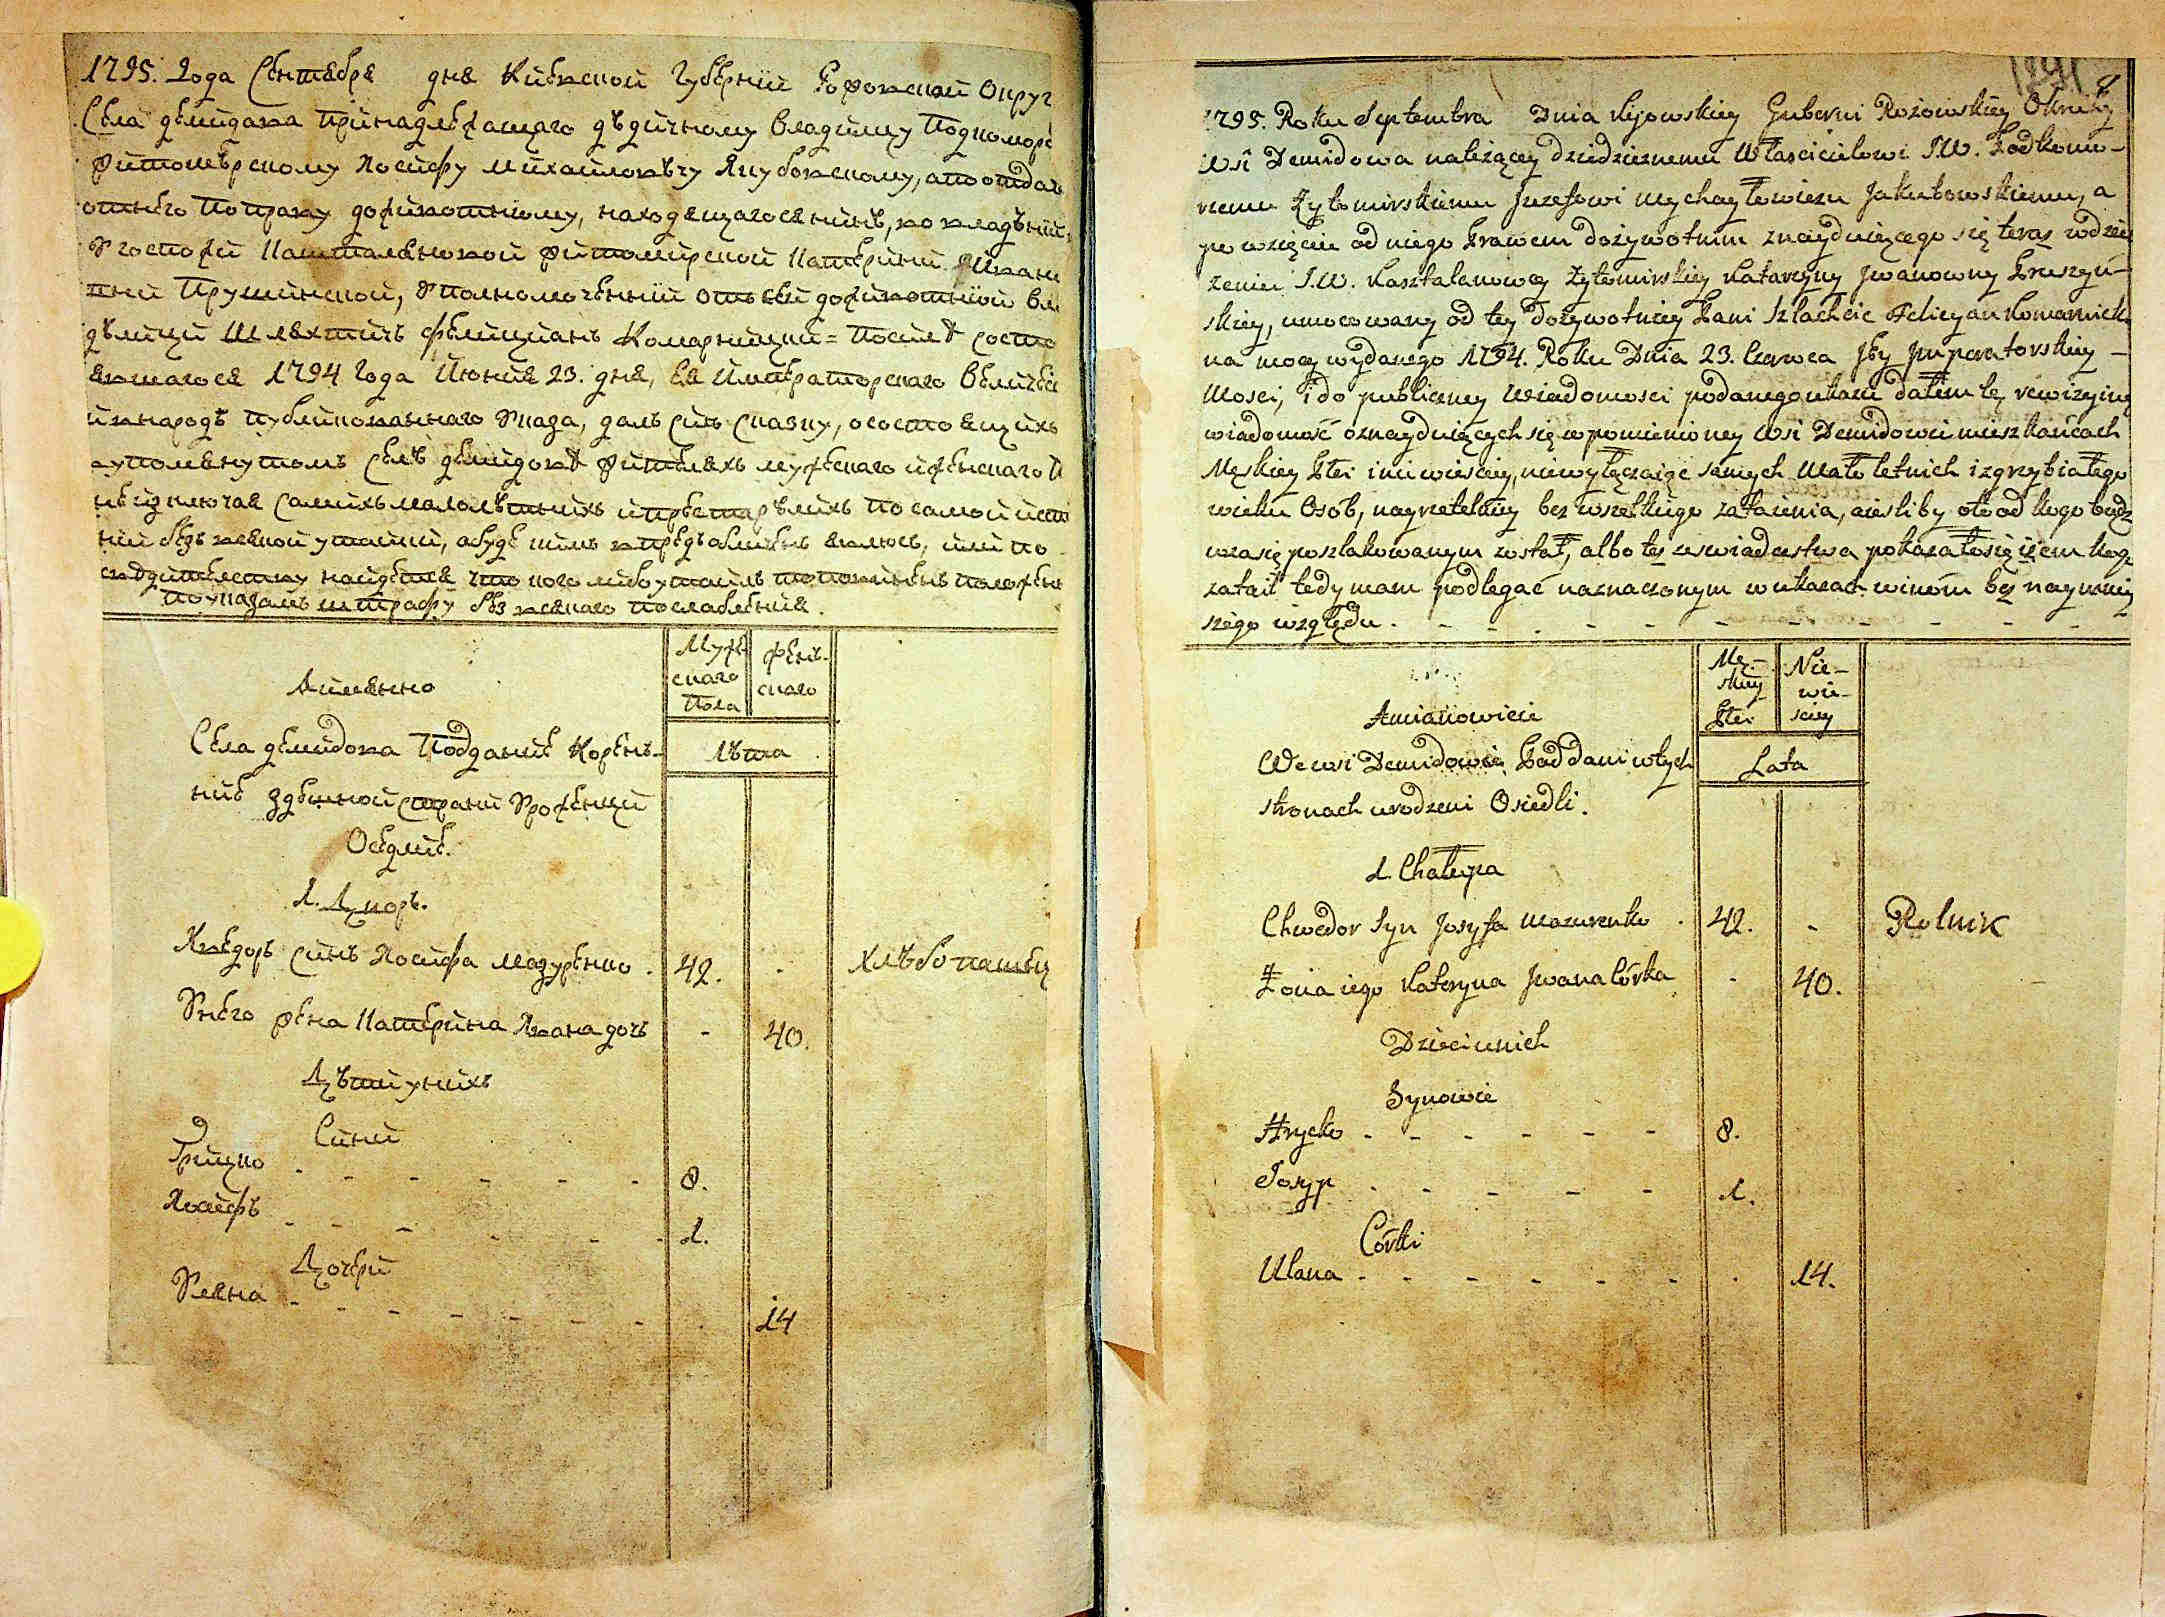 1795. Года Сентября дня Киевской Губернии Рожовской Округ
Села Демидова принадлежащаго дѣдичному владимцу Подкомор
Житомѣрскому Иосифу Михайловѣчу Якубовскому, а по отдач
отнего по праву доживотному, находящагося нинѣ, во владѣнии
Угоспожи Каштеляновой Житомирской Катерини Ивано
вни Прушинской, Уполномоченнии от сей доживотнюй вла
дѣлици Шляхтичъ Фелициянъ Комарницкий = После состо
явшагося 1794 года Июния 23. дня, Ея Императорскаго Величес
и внародъ публикованнаго Указа, далъ сию сказку, о состоящихъ
вуполмянутомъ селѣ Демидовѣ жителяхъ мужескаго и женскаго п
не изключая самихъ малолѣтнихъ и престарѣлихъ по самой исти
ний безъ всякой утайки, а буде кимъ впредъ обличенъ явлюсь, или по
свидителству найдется что кого либо утаилъ то повиненъ положен
по указамъ штрафу без всякаго послабления.
Аимянно
Муж
скаго
пола
Жен-
скаго
Села Демидова Поддание Корен-
ние здешной страни Урожени
Оседлие.
Лѣта
1. Дворъ.
Хведоръ синъ Иосифа Мазуренко . 42. - хлѣбопашец
Унего жена Катерина Ивана дочъ - 40.
Дѣти унихъ
Сини
Грицко - - - - - - 8.
Иосифъ - - - - - - 1.
Дочери
Уляна - - - - - - - . 14
1795. Roku Septembra Dnia Kijowskiey Guberni Rozowskiey Okruhy
wsi Demidowa należącey dziedzicznemu Włascicielowi J.W. Podkomo-
rzemu Żytomirskiemu Juzefowi Mychayłowiczu Jakubowskiemu, a
po wzięciu od niego Prawem dożywotnim znayduiącego się teraz w dzier
zeniu J.W. Kasztelanowey Żytomirskiey Katarzyny Jwanowny Pruszyń-
skiey, umocowany od tey dożywotniey Pani Szlachcic Felicyan Komarnicki
na mocy wydanego 1794. Roku Dnia 23. Czerwca Jey Jmperatorskiey -
Mosci, i do publiczney wiadomosci podanego ukazu dałem tę rewizyiną
wiadomość o znayduiących się w pomienioney wsi Demidowi mieszkańcach
Męskiey Płci i niewieściey, niewyłączaiąc samych Mało letnich i zgrzybiałego
wieku Osób, nayrzetelniey bez wszelkiego zataienia, a iesliby kto od kogo bądz
wzasię poszlakowanym został, albo tez z swiadectwa pokazało się iżem kogo
zataił tedy mam podlegać naznaczonym w ukazach winóm bez naymniey
szego względu. - - - - - - - - - -
Amianowicie
Mę-
skiey
Płci
Nie-
wie-
sciey
We wsi Demidowie Poddani w tych
stronach urodzeni Osiedli.
Lata
1. Chałupa
Chwedor Syn Josyfa Mazurenko . 42. - Rolnik
Żona iego Kateryna Jwana Córka - 40.
Dzieci u nich
Synowie
Hrycko - - - - - - 8.
Josyp - - - - - 1.
Córki
Ulana - - - - - - - . 14.